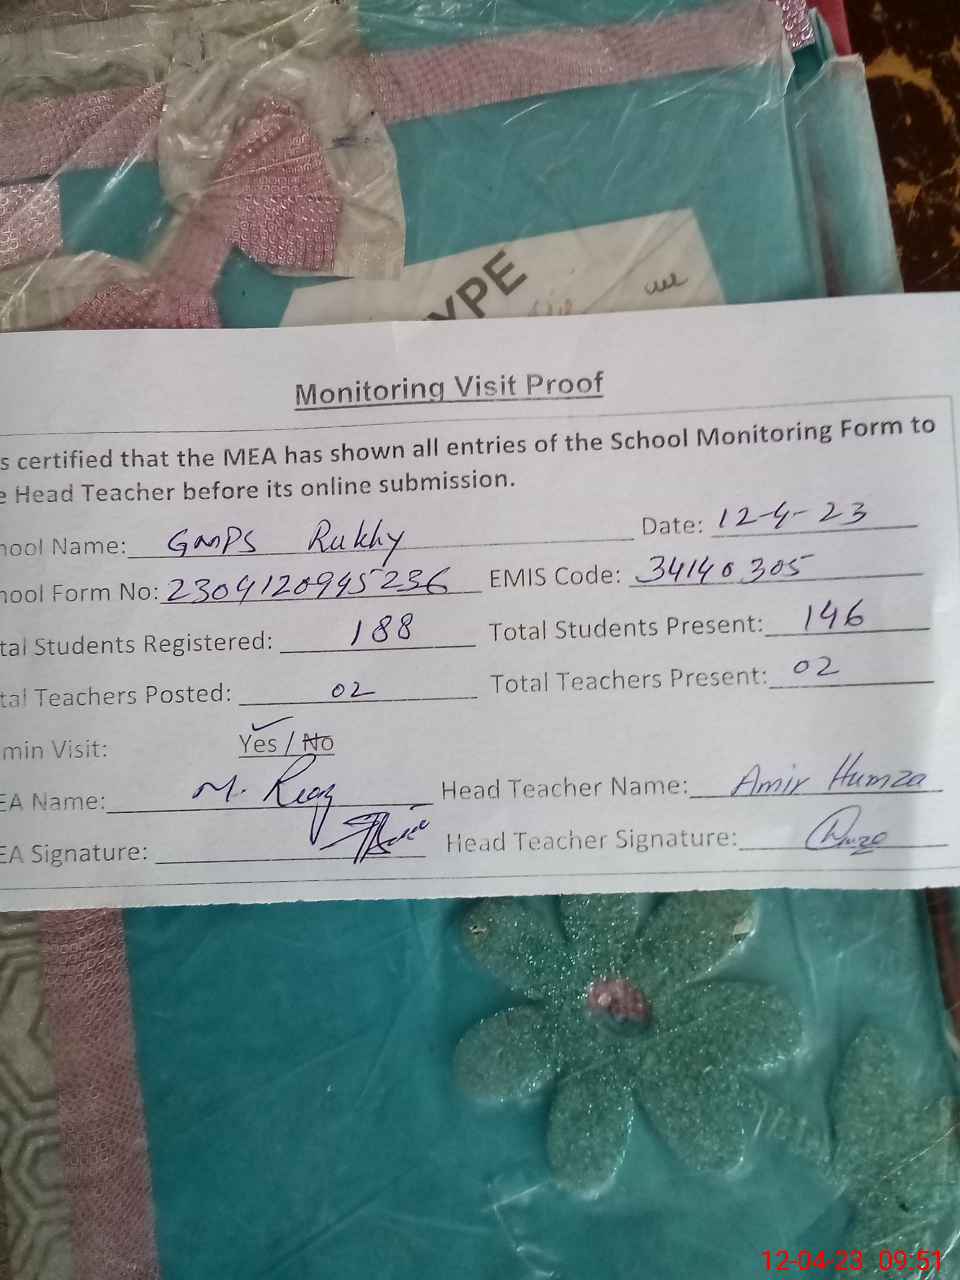 YPE
Monitoring Visit Proof
s certified that the MEA has shown all entries of the School Monitoring Form to
e Head Teacher before its online submission.
hool Name: GMPS Rukhy Date: 12-4-23
hool Form No: 2304120945236 EMIS Code: 34140305
tal Students Registered: 188 Total Students Present: 146
tal Teachers Posted: 02 Total Teachers Present: 02
min Visit: Yes / No
EA Name: M. Reaz Head Teacher Name: Amir Humza
EA Signature: Head Teacher Signature:
12-04-23 09:51